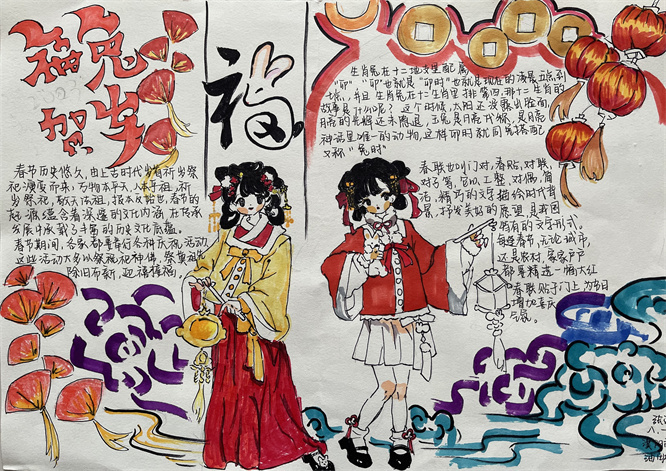 福兔
贺岁
2023
福
春节历史悠久,由上古时代岁首祈岁祭
祀演变而来。万物本乎天,人本乎祖,祈
岁祭祀、敬天法祖,报本反始也。春节的
起源蕴含着深邃的文化内涵,在传承
发展中承载了丰富的历史文化底蕴。
春节期间,全家都要举行各种庆祝活动,
这些活动大多以祭祝祀神佛、祭奠祖先、
除旧布新、迎禧接福、
生肖兔在十二地支里配属
"卯","卯"也就是"卯时"也就是现在的清晨五点到
七点,并且生肖兔在十二生肖里排第四,那十二生肖的
故事是什么呢?这个时候,太阳还没露出脸面,
月亮的光辉还未隐退,玉兔是月亮代称,是月亮
神话里唯一的动物,这样卯时就同兔搭配
又称"兔时"
春联也叫门对、春贴、对联、
对子等,它以工整、对偶、简
洁、精巧的文字描绘时代背
景,抒发美好的愿望,是我国
特有的文学形式。
每逢春节,无论城市,
还是农村,家家户户
都要精选一幅大红
春联贴于门上,为节日
增加喜庆
气氛。